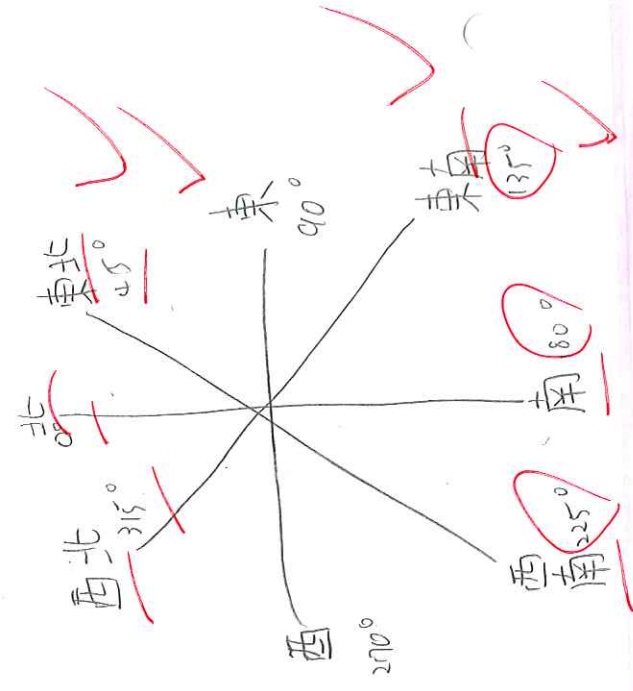 北
0°
東北
45°
東
90°
東南
135°
南
180°
西南
225°
西
270°
西北
315°